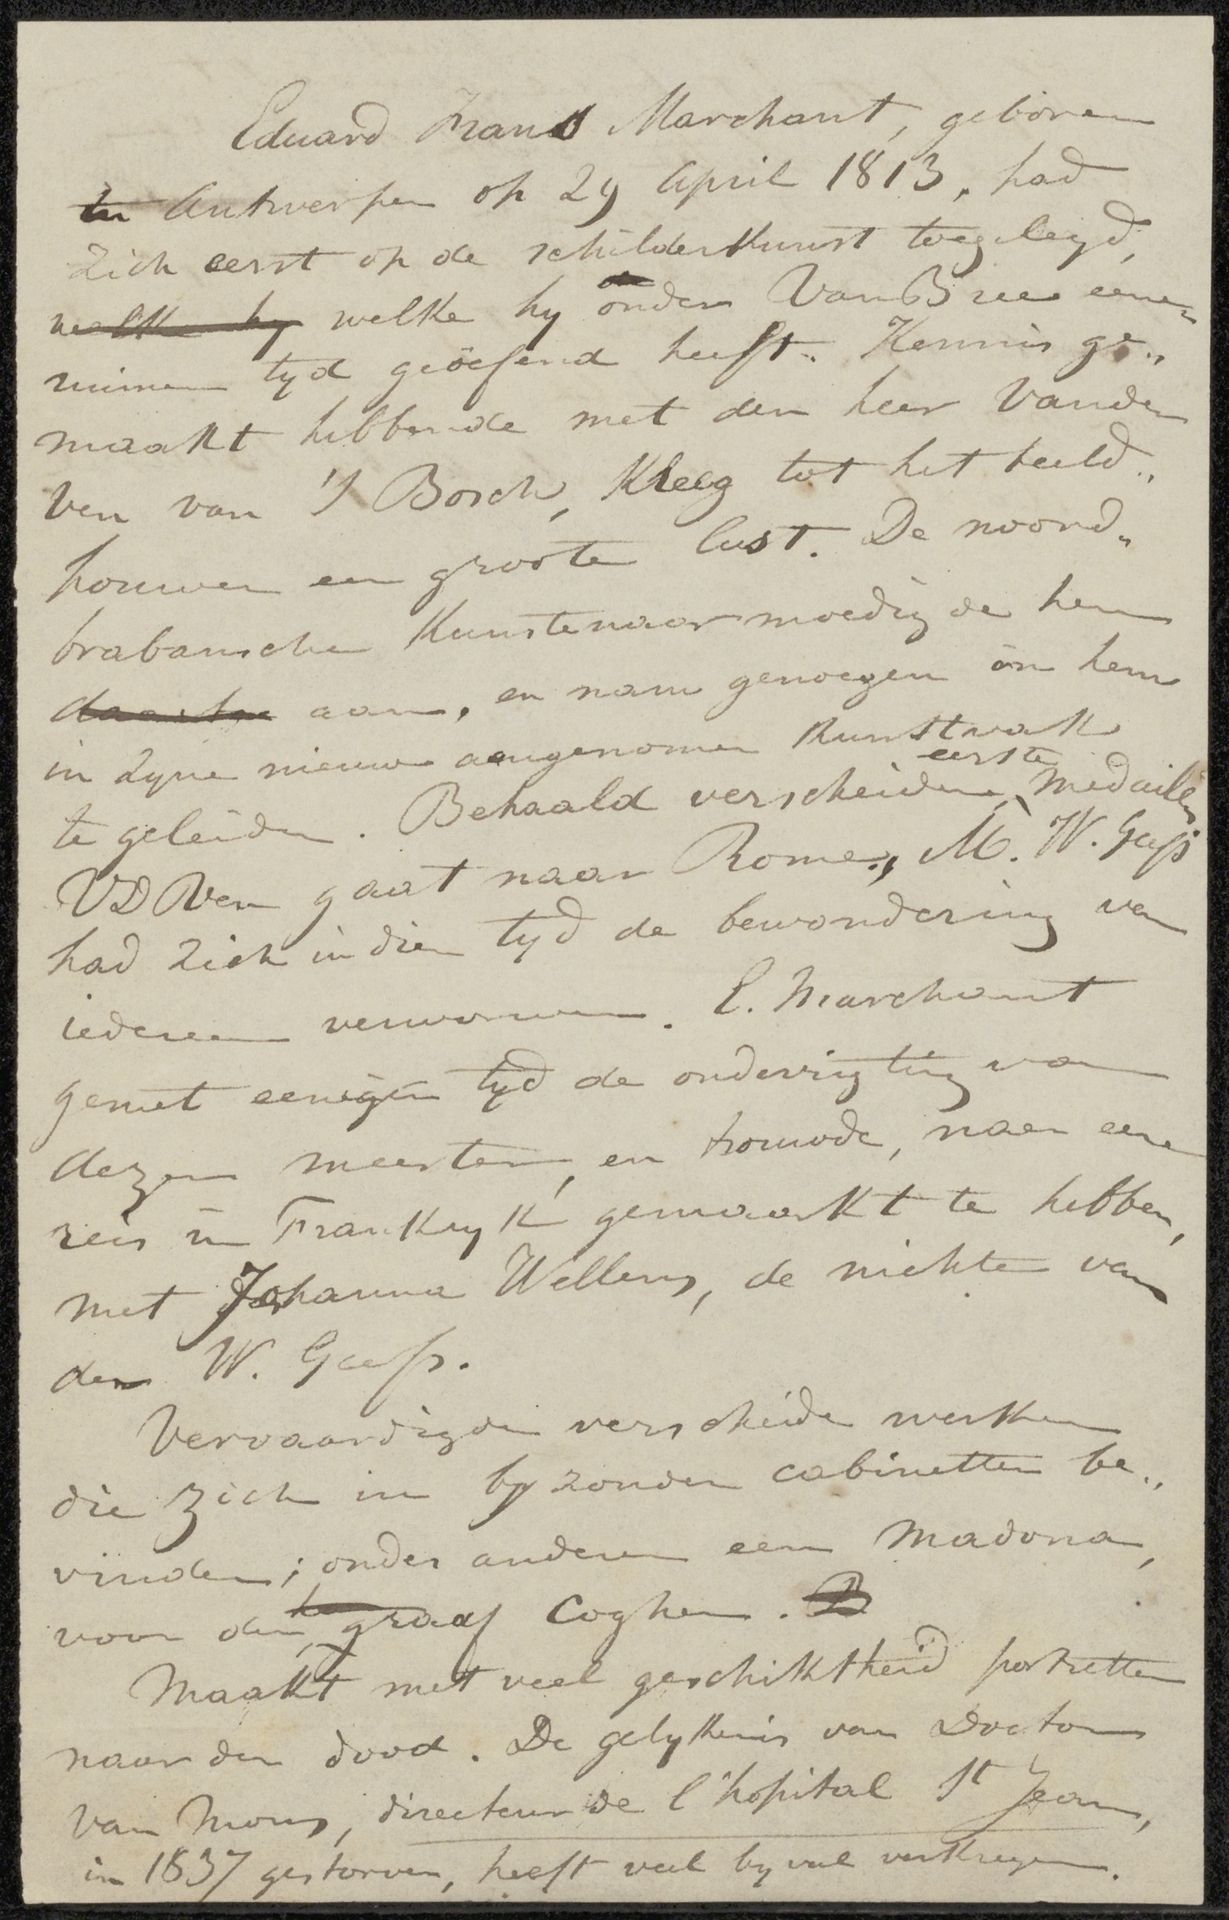 Eduard Frans Marchant, geboren
te Antwerpen op 29 April 1813, had
zich eerst op de schilderkunst toegelegd,
welke hy welke hy onder Van Bree eenen
ruimen tyd geöefend heeft. Kennis ge„
maakt hebbende met den heer Vanden
Ven van 's Bosch, kreeg tot het beeld„
houwen een groote lust. De noord„
brabansche Kunstenaar moedigde hem
daartoe aan, en nam genoegen om hem
in zyne nieuw aengenomen Kunstvak
te geleiden. Behaald verscheidene eerste medailles
VD Ven gaat naar Rome, M. W. Geefs
had zich in dien tyd de bewondering van
iedereen verworven. E. Marchant
geniet eenigen tyd de onderrigting van
dezen meester, en trouwde, naer eene
reis in Frankryk gemaakt te hebben,
met Johanna Wellens, de nichte van
den W. Geefs.
Vervaardigde verscheide werken
die zich in byzonder cabinetten be„
vinden; onder anderen een Madona,
voor den graaf Coghen. B
Maakt met veel geschiktheid portretten
naar den dood. De gelykenis van Doctor
van Mons, directeur de l'hopital St Jean,
in 1837 gestorven, heeft veel byval verkregen.